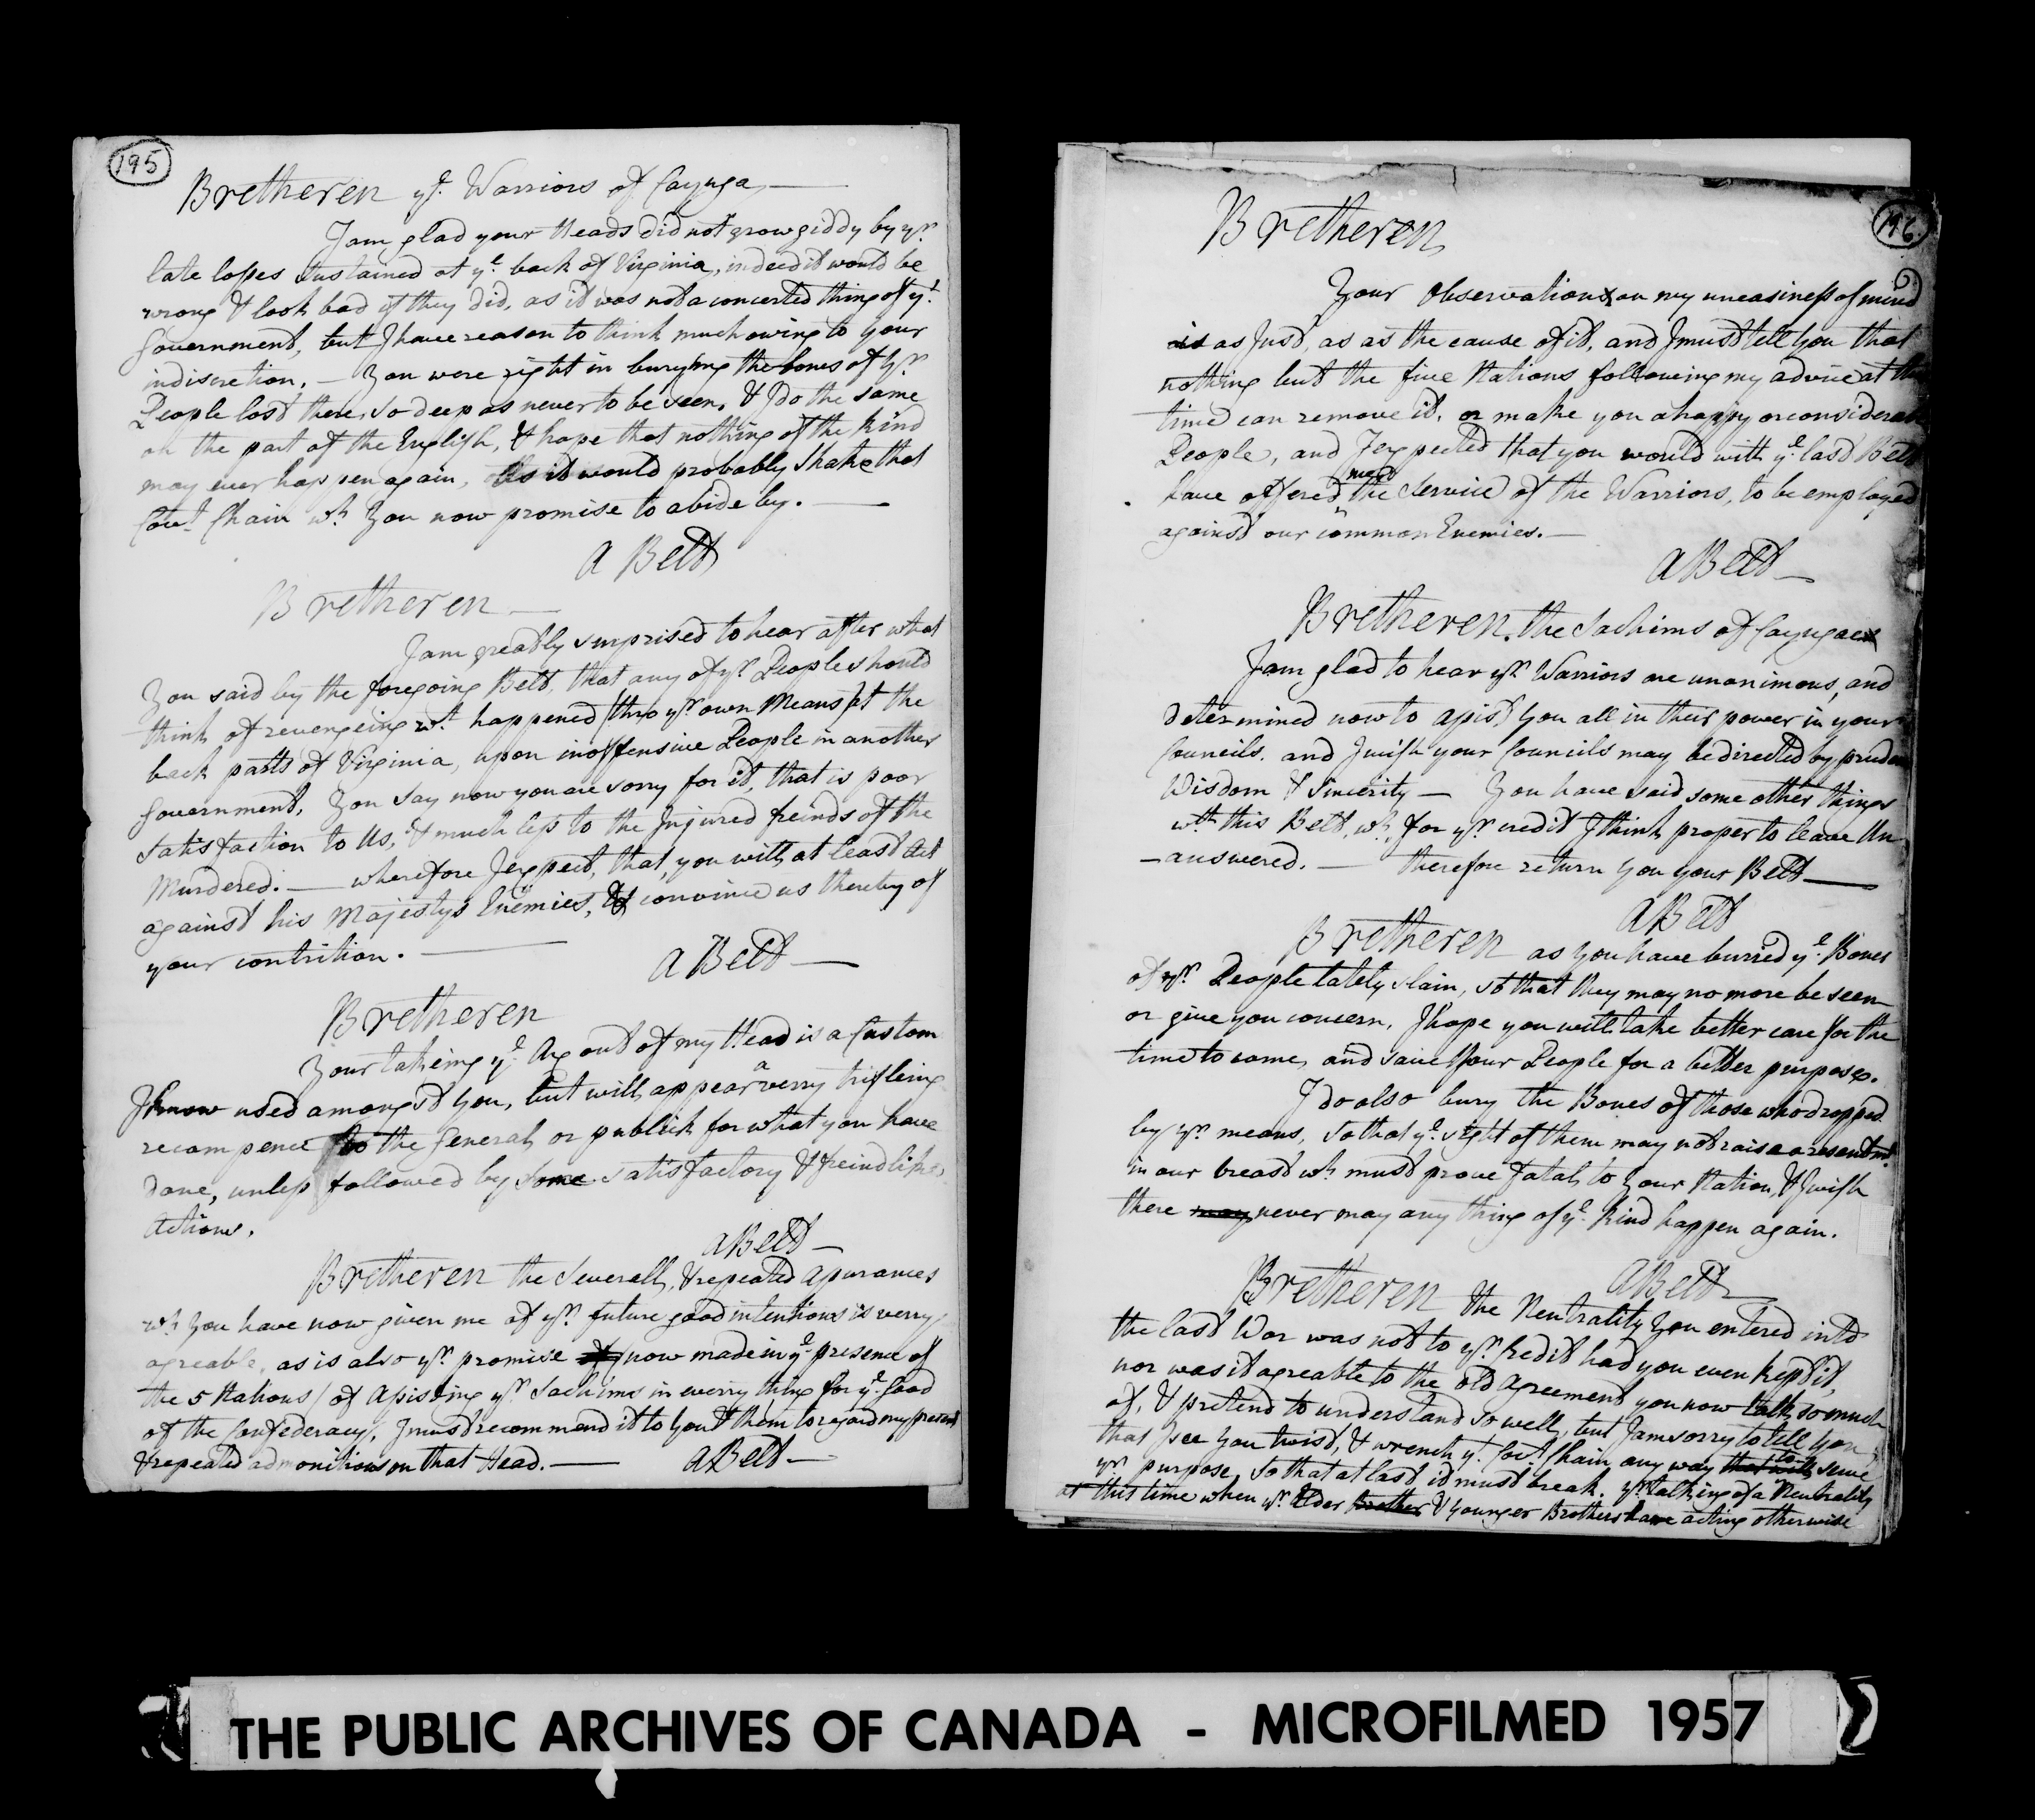 195
Bretheren yᵉ. Warriors of Cayuga,
I am glad your Heads did not grow giddy by yʳ.
late losses sustained at yᵉ. back of Virginia, indeed it would be
wrong & look bad if they did, as it was not a concerted thing of yᵗ.
Government, but I have reason to think much owing to your
indiscretion. — You were right in burying the bones of yʳ.
People lost there, so deep as never to be seen, & I do the same
on the part of the English, & hope that nothing of the kind
may ever happen again, As it would probably shake that
Covt. Chain wh. you now promise to abide by. —
A Belt
Bretheren —
I am greatly surprised to hear after what
You said by the foregoing Belt, that any of yʳ. People should
think of revengeing wt. happened (thro yʳ. own Means) at the
back parts of Virginia, upon inoffensive People in another
Government. You say now you are sorry for it, that is poor
satisfaction to Us, & much less to the Injured freinds of the
Murdered. — wherefore I expect, that you will, at least Act
against his Majestys Enemies, & convince us thereby of
your contrition. —
A Belt —
Bretheren
Your takeing yᵉ. Ax out of my Head is a Custom
I know used amongst You, but will appear a verry trifleing
recompence to the General, or publick for what you have
done, unless followed by some satisfactory & freindlike,
Actions.
A Belt —
Bretheren the Severall, & repeated assurances
wh. You have now given me of yʳ. future good intentions is verry
agreable, as is also yʳ. promise of (now made in yᵉ. presence of
the 5 Nations) of assisting yʳ. Sachims in everry thing for yᵉ. Good
of the Confederacy, I must recommend it to You & them to regard my present
& repeated admonitions on that Head. — A Belt —
196.
Bretheren,
Your Observation on my uneasiness of mind
is as Just, as is the cause of it, and I must tell You that
nothing but the five Nations following my advice at
time can remove it, or make you a happy or
People, and I expected that you would with yᵉ. last Belt
have offered me the Service of the Warriors, to be employed
against our common Enemies. —
A Belt —
Bretheren. the Sachims of Cayuga
I am glad to hear yʳ. Warriors are unanimous, and
determined now to assist You all in their power in your
Councils. and I wish your Councils may be directed by
Wisdom & Sincerity — You have said some other things
wth. this Belt, wh. for yʳ. credit I think proper to leave Un
-answered. — therefore return You your Belt —
A Belt
Bretheren as you have burried yᵉ. Bones
of yʳ. People lately slain, so that they may no more be seen
or give you concern, I hope you will take better care for the
time to come, and save Your People for a better purpose.
I do also bury the Bones of those who dropped
by yʳ. means, so that yᵉ. sight of them may not raise a resentmt.
in our breast wh. must prove fatal, to Your Nation, & I wish
there may never may any thing of yᵉ. kind happen again.
A Belt —
Bretheren the Neutrality You entered into
the last War was not to yʳ. Credit had you even kept it,
nor was it agreable to the old Agreement you now talk so much
of, & pretend to understand so well, but I am sorry to tell You
that I see You twist, & wrench yᵉ. Covt. Chain any way that will to serve
yʳ. purpose, so that at last it must break. yʳ. talking of a Neutrality
at this time when yʳ. Elder Brother & younger Brothers are acting otherwise
THE PUBLIC ARCHIVES OF CANADA - MICROFILMED 1957